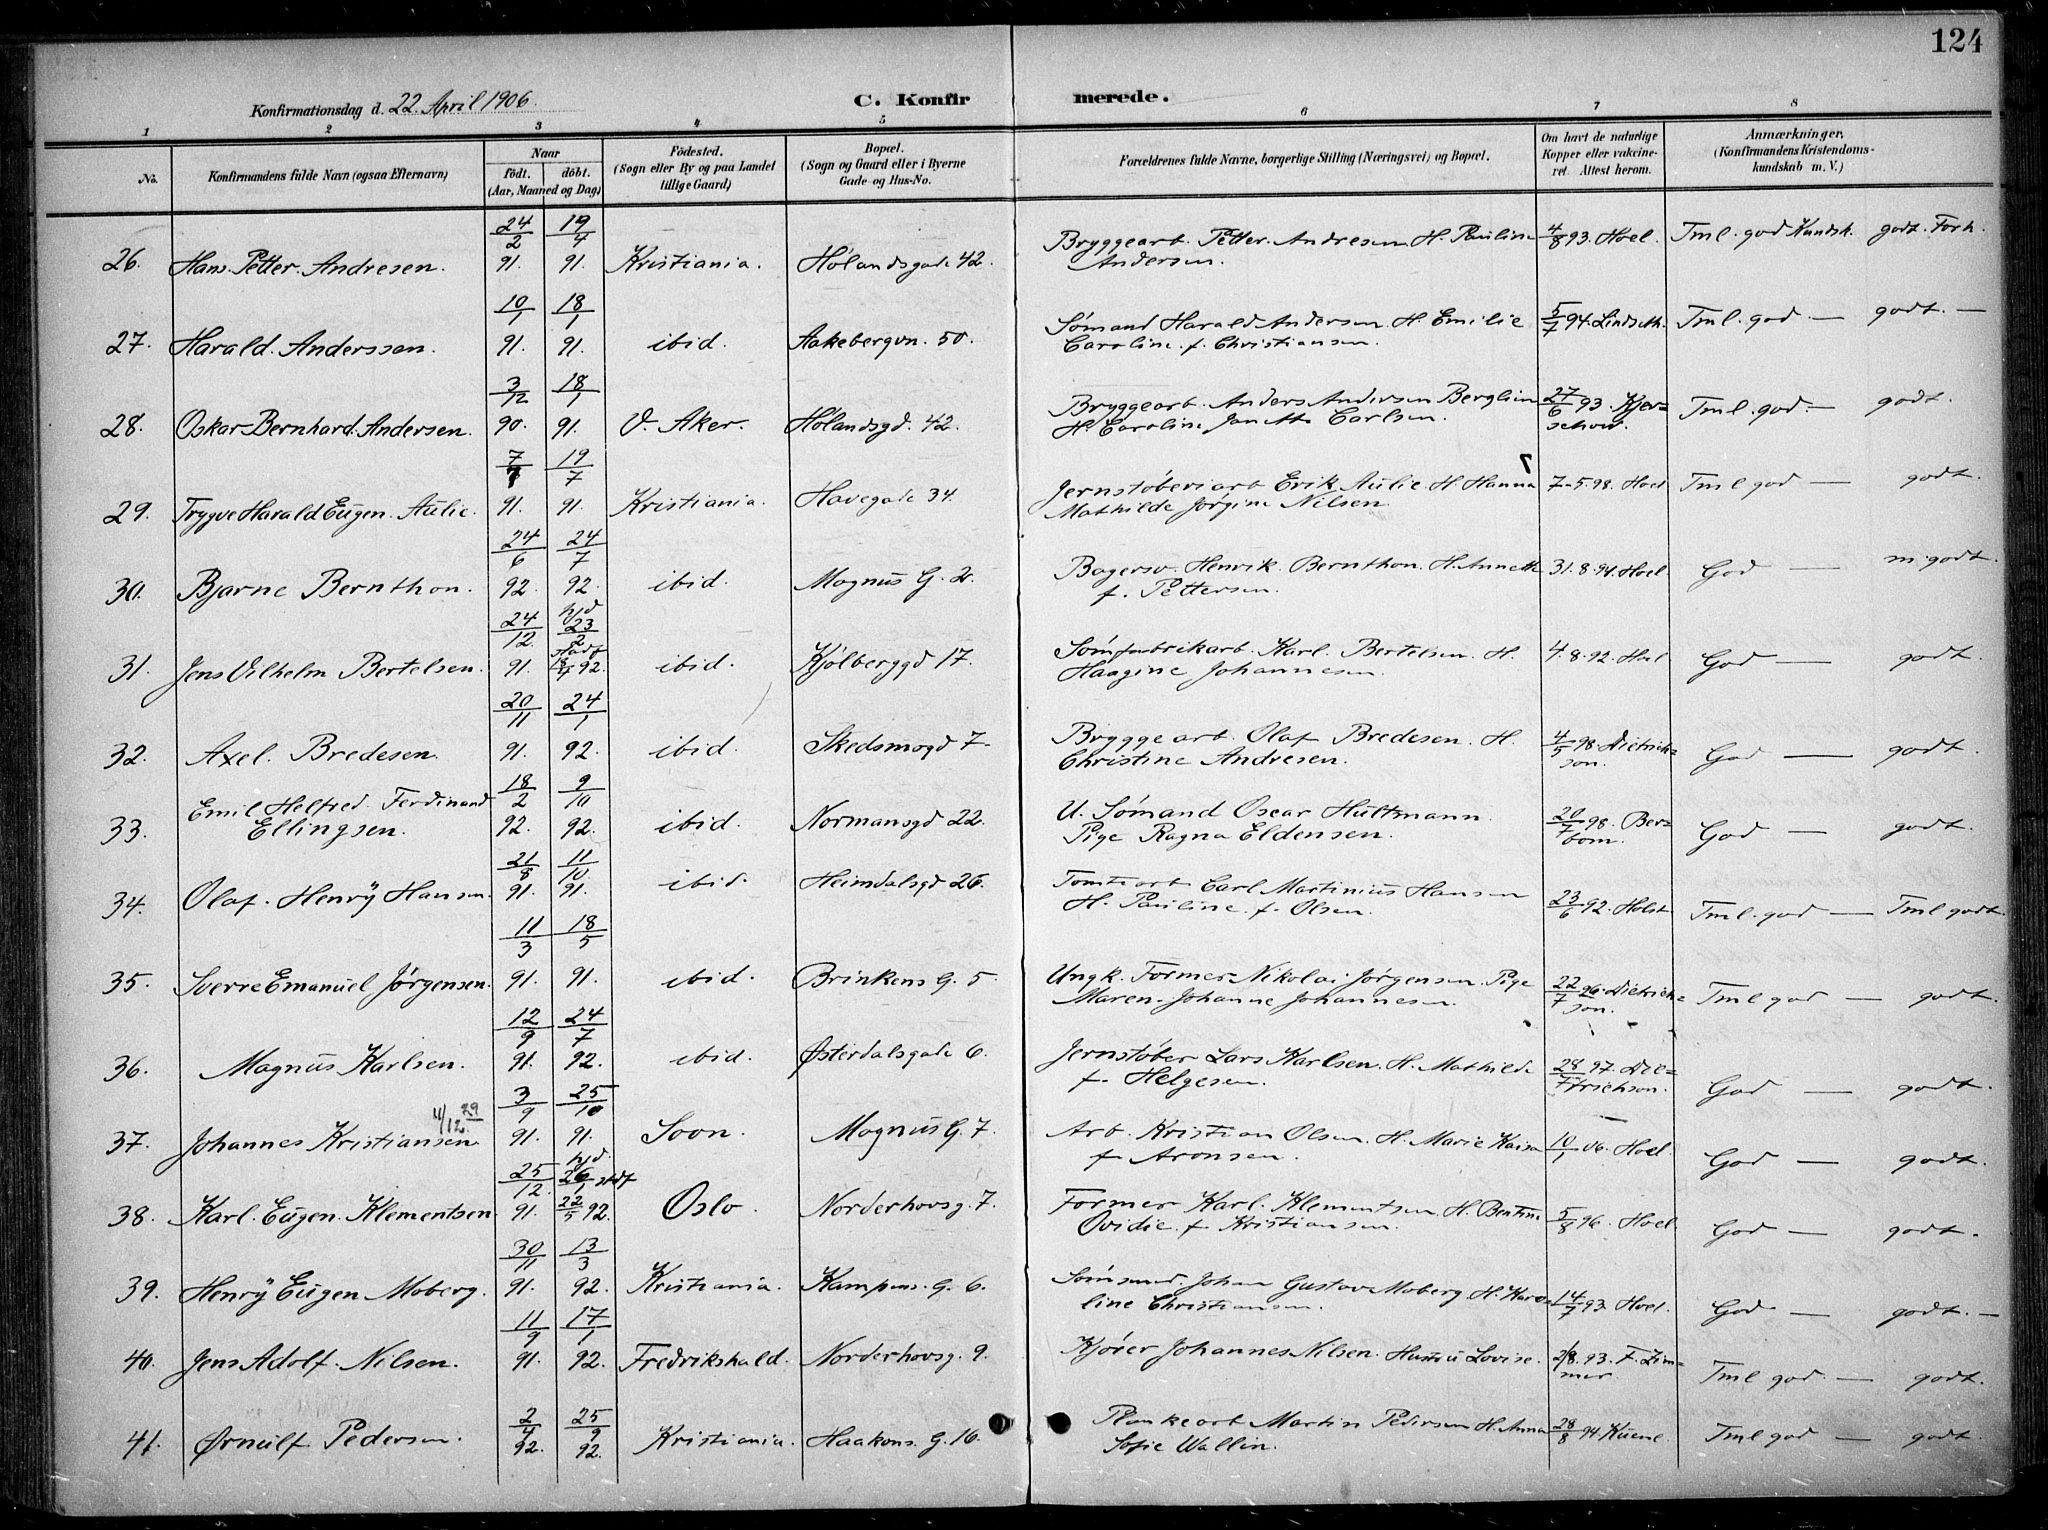 124
Konfirmationsdag d. 22. April 1906.
C. Konfirmerede.
1 2 3 4 5 6 7 8
No.
Konfirmandens fulde Navn (ogsaa Efternavn)
Naar
født. døbt.
(Aar, Maaned og Dag)
Fødested.
(Sogn eller By og paa Landet
tillige Gaard)
Bopæl.
(Sogn og Gaard eller i Byerne
Gade og Hus-No.
Forældrenes fulde Navne, borgerlige Stilling (Næringsvei) og Bopæl.
Om havt de naturlige
Kopper eller vakcine-
ret. Attest herom.
Anmærkninger.
(Konfirmandens Kristendoms-
kundskab m. V.)
26. Hans Petter Andresen. 24/2 91. 19/4 91. Kristiania. Hølandsgade 42. Bryggearb. Petter Andresen H. Pauline 4/8 93. Hoel. Tml. god Kundsk. godt. Forh.
Andersen.
27. Harald Anderssen. 10/1 91. 18/1 91. ibid. Aakebergvn. 50. Sømand Harald Andersen. H. Emilie 5/7 94. Lindseth. Tml. god — godt. —
Caroline f. Christiansen.
28. Oskar Bernhard Andersen. 3/12 90. 18/1 91. V. Aker. Hølandsgd. 42. Bryggearb. Anders Andersen Berglin 27/6 93. Kjer=
H. Caroline Janette Carlsen. schow. Tml. god. — godt.
29. Trygve Harald Eugen Aulie. 91. 19/7 91. Kristiania. Havegade 34. Jernstøberiarb Erik Aulie. H. Hanna 7-5.98. Hoel Tml god — godt.
Mathilde Jørgine Nilsen.
30. Bjarne Bernthon. 24/6 92. 24/7 92. ibid. Magnus G. 2. Bagersv. Henrik Bernthon. H. Annette 31.8.94. Hoel. God — m. godt.
f. Pettersen.
31. Jens Vilhelm Bertelsen. 24/12. 91. hjd 23/2 stadf 92. ibid. Kjølberggd 17. Sømfabrikarb. Karl. Bertelsen. H. 4.8.92. Hoel God — godt.
Haagine Johannesen.
32. Axel. Bredesen. 20/11 91. 24/1 92. ibid. Skedsmogd 7. Bryggearb. Olaf Bredesen. H. 4/5 98. Dietrich=
Christine Andresen. son. God — godt.
33. Emil Helfred Ferdinand
Ellingsen. 18/2 92. 9/10 92. ibid. Normansgd 22. U. Sømand Oscar Hultmann. 20/7 98. Ber=
Pige Ragna Eldensen. bom. God — godt.
34. Olaf. Henry Hansen. 21/8 91. 11/10 91. ibid. Heimdalsgd 26. Tomtearb Carl Martinius Hansen 23/6 92. Holst Tml. god — Tml godt.
H. Pauline f. Olsen.
35. Sverre Emanuel Jørgensen. 11/3 91. 18/5 91. ibid. Brinkens G. 5 Ungk. Former Nikolai Jørgensen. Pige 22/7 96. Dietrich=
Maren Johanne Johannesen son. Tml god — godt.
36. Magnus Karlsen. 12/9 91. 24/7 92. ibid. Østerdalsgade 6. Jernstøber Lars Karlsen. H. Mathilde 28/7 97. Die=
f. Helgesen. trichson. God — godt.
37. Johannes Kristiansen 3/9 91. 25/10 91. Soon. Magnus G. 7. Arb. Kristian Olsen. H. Marie Kaisa 10/1 06. Hoel. God — godt.
f. Aronsen.
38. Karl. Eugen Klementsen 25/12. 91. hjd 26/1 stdf 22/5 92. Oslo. Norderhovsg. 7. Former Karl. Klementsen. H. Bentine 5/8 96. Hoel God — godt.
Ovidie f. Kristiansen.
39. Henry Eugen Moberg. 30/11 91. 13/3 92. Kristiania. Kampens. G. 6. Sømsmed. Johan Gustav Moberg H. Karo= 14/7 93. Hoel. God — godt. —
line Christiansen.
40. Jens Adolf Nilsen. 11/9 91. 17/1 92. Fredrikshald. Norderhovsg. 9. Kjører Johannes Nilsen. Hustru Lovise. 8.93. F. Zim=
mer Tml god. — godt.
41. Ørnulf Pedersen. 2/4 92. 25/9 92. Kristiania. Haakons. G. 16. Plankearb Martin Pedersen H. Anna 28/8 94. Kuene. Tml god — godt.
Sofie Wallin.